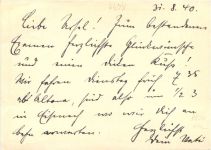 31.8.40.
Liebe Ursel! Zum bestandenen
Examen herzlichste Glückwünsche
und einen dicken Kuss!
Wir fahren Dienstag früh 7 35
ab Altona, sind also um 1/2 3
in Eisenach, wo wir Dich an-
 erwarten. Herzlichst
Dein Vati